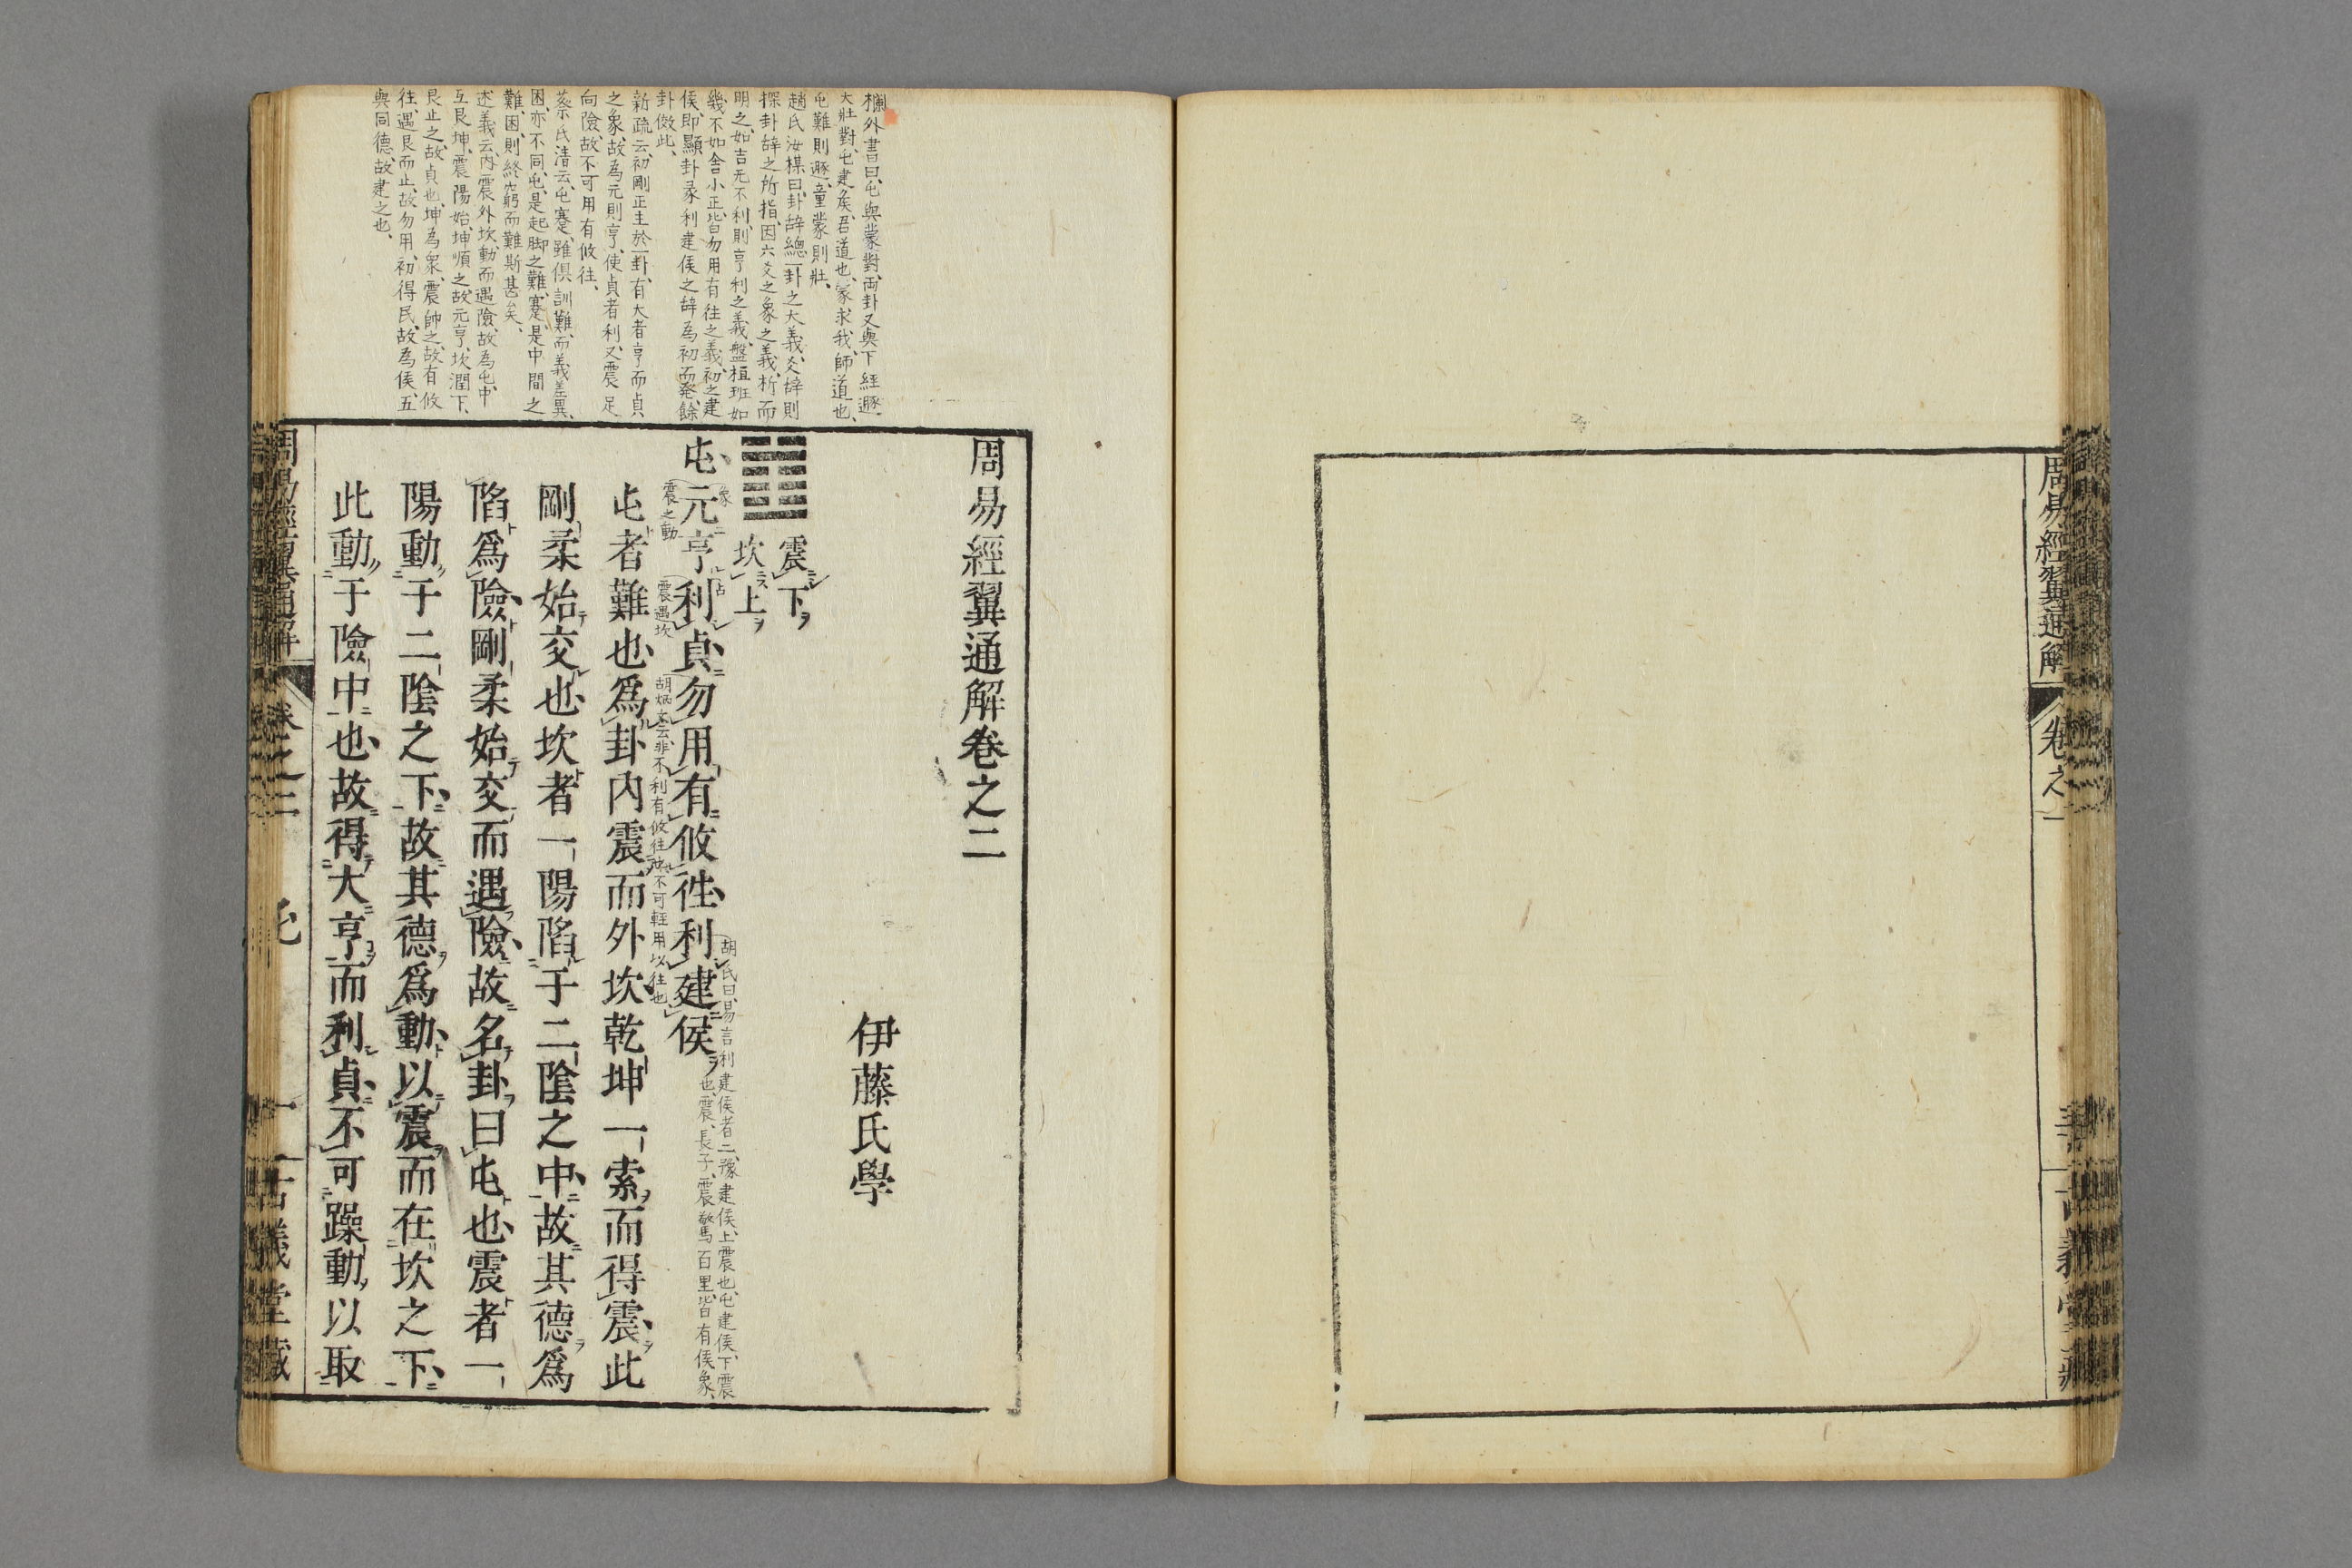 周易經翼通解
卷之一
欄外書曰、屯與蒙對、兩卦又與下經遯
大壯對、屯建矦、君道也、蒙求我、師道也、
屯難則遯、童蒙則壯、
趙氏汝楳曰、卦辞總一卦之大義、爻辞則
探卦辞之所指、因六爻之象之義、析而
明之、如吉无不利、則亨利之義、盤桓班如
幾不如舍小正、皆勿用有往之義、初之建
侯、即顯卦彖利建侯之辞為初而發、餘
卦倣此、
新疏云、初剛正主於一卦、有大者亨而貞
之象、故為元則亨、使貞者利、又震足
向險、故不可用有攸往、
蔡氏清云、屯蹇雖俱訓難、而義差異、
困亦不同、屯是起脚之難、蹇是中間之
難、困則終窮而難斯甚矣、
述義云、内震外坎、動而遇險、故為屯、中
互艮坤、震陽始、坤順之、故元亨、坎潤下、
艮止之、故貞也、坤為衆、震帥之、故有攸
往、遇艮而止、故勿用、初得民、故為侯、五
與同德、故建之也、
周易經翼通解卷之二
伊藤氏學
震下
坎上
胡氏曰、易言利建侯者二、豫建侯、上震也、屯建侯、下震
也、震、長子、震驚百里、皆有侯象、
象
占
屯元亨利貞勿用有攸往利建侯
震之動
震遇坎
胡炳文云、非不利有攸往也、不可輕用以往也
屯者難也爲卦内震而外坎乾坤一索而得震此
剛柔始交也坎者一陽陷于二陰之中故其德爲
陷爲險剛柔始交而遇險故名卦曰屯也震者一
陽動于二陰之下故其德爲動以震而在坎之下
此動于險中也故得大亨而利貞不可躁動以取
周易經翼通解 卷之二 屯 一 古義堂藏